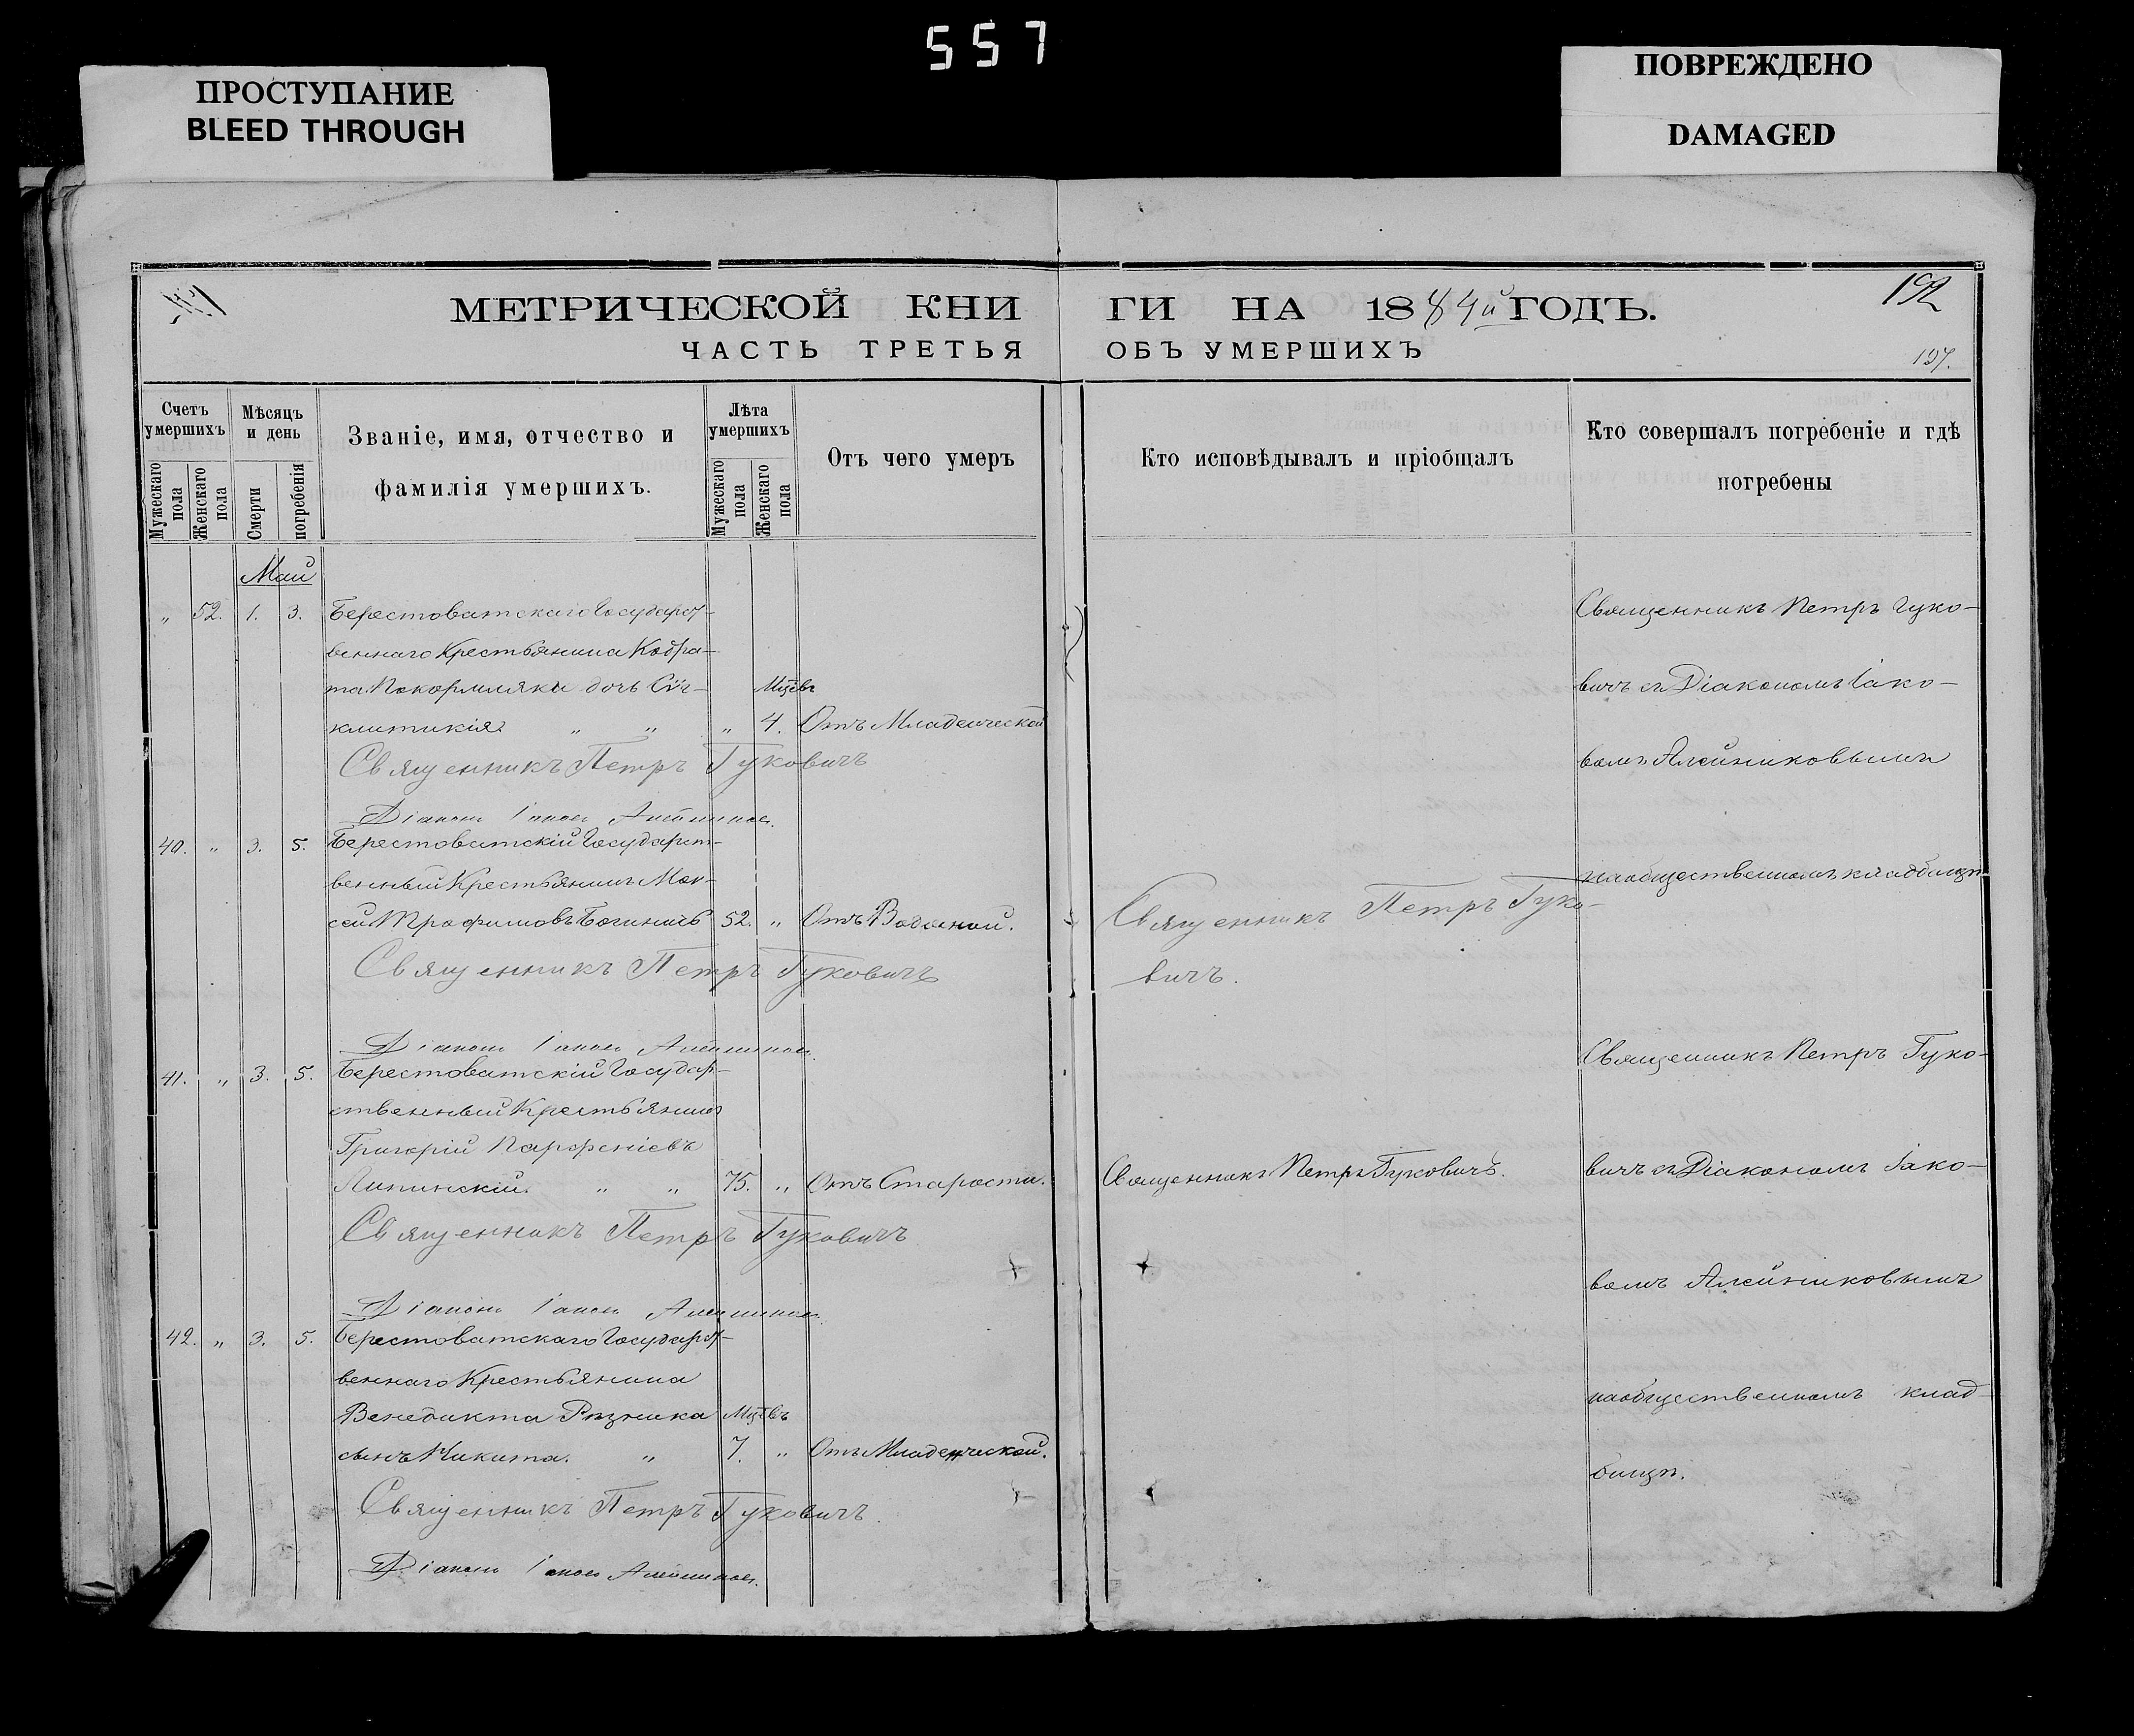 557
ПРОСТУПАНИЕ
BLEED THROUGH
ПОВРЕЖДЕНО
DAMAGED
МЕТРИЧЕСКОЙ КНИ
ГИ НА 1884й ГОДЪ.
192
ЧАСТЬ ТРЕТЬЯ
ОБЪ УМЕРШИХЪ
197.
Счетъ умершихъ
Мужескаго пола
Женскаго пола
Мѣсяцъ и день
Смерти
погребенія
Званіе, имя, отчество и
фамилія умершихъ.
Лѣта умершихъ
Мужескаго пола
Женскаго пола
Отъ чего умеръ
Кто исповѣдывалъ и пріобщалъ
Кто совершалъ погребеніе и гдѣ
погребены
Май
„ 52. 1. 3. Берестоватскаго Государст-
веннаго Крестьянина Кодра-
та Покормляки дочь Сѵг-
Мцевъ
клитикія „ „ „ 4. Отъ Младенческой
Священникъ Петръ Гуковичъ
Діаконъ Іаковъ Алейниковъ.
40. „ 3. 5. Берестоватскій Государст-
венный Крестьянинъ Мои-
сей Трофимовъ 52. „ Отъ Водяной.
Священникъ Петръ Гуковичъ
Діаконъ Іаковъ Алейниковъ.
41. „ 3. 5. Берестоватскій Государ-
ственный Крестьянинъ
Григорій Парфеніевъ
Липинскій. „ „ 75. „ Отъ Старости.
Священникъ Петръ Гуковичъ
Діаконъ Іаковъ Алейниковъ.
42. „ 3. 5. Берестоватскаго Государст-
веннаго Крестьянина
Венедикта Рѣзника Мцевъ
сынъ Никита. „ 7. „ Отъ Младенческой.
Священникъ Петръ Гуковичъ.
Діаконъ Іаковъ Алейниковъ.
Священникъ Петръ Гуко-
вичъ.
Священникъ Петръ Гуковичъ.
Священникъ Петръ Гуко-
вичъ съ Діакономъ Іако-
вомъ Алейниковымъ
на общественномъ кладбищѣ
Священникъ Петръ Гуко-
вичъ съ Діакономъ Іако-
вомъ Алейниковымъ
на общественномъ клад-
бищѣ.